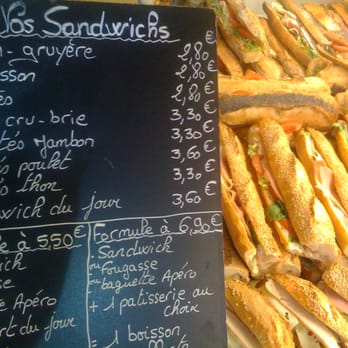 Nos Sandwichs
- gruyère 2,80 €
sson 2,80 €
es 2,80 €
cru - brie 3,30 €
tés jambon 3,30 €
s poulet 3,60 €
s thon 3,30 €
wich du jour 3,60 €
e à 5,50€
ich
se
e Apéro
rt du jour
Formule à 6,20€
Sandwich
ou fougasse
ou baguette Apéro
+ 1 patisserie au
choix
+ 1 boisson